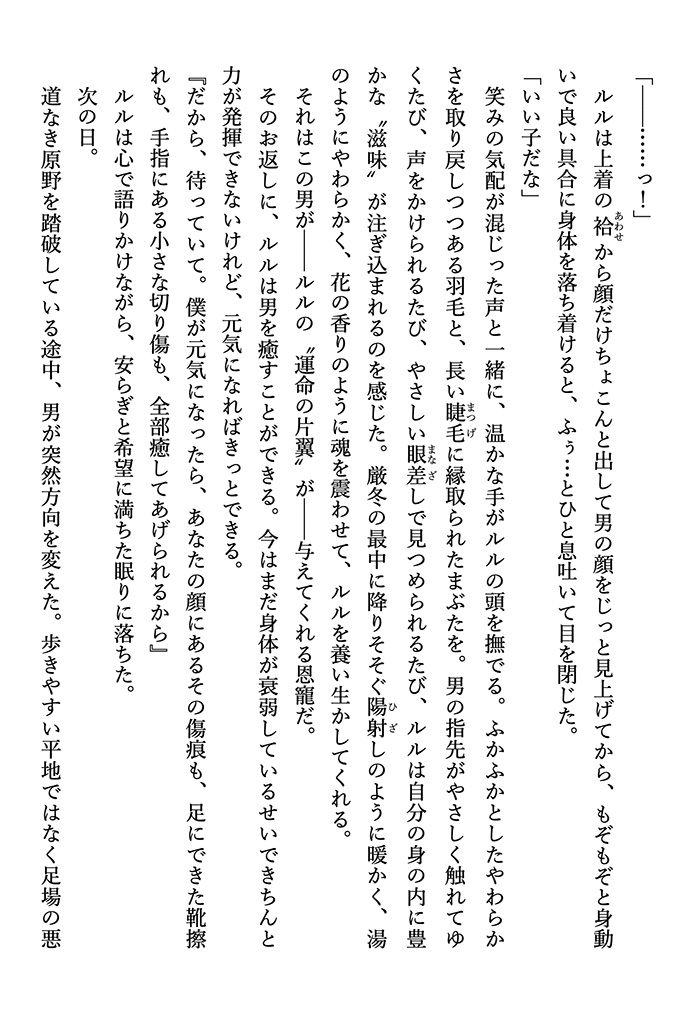 「――……っ！」
　ルルは上着の袷から顔だけちょこんと出して男の顔をじっと見上げてから、もぞもぞと身動
いで良い具合に身体を落ち着けると、ふぅ…とひと息吐いて目を閉じた。
「いい子だな」
　笑みの気配が混じった声と一緒に、温かな手がルルの頭を撫でる。ふかふかとしたやわらか
さを取り戻しつつある羽毛と、長い睫毛に縁取られたまぶたを。男の指先がやさしく触れてゆ
くたび、声をかけられるたび、やさしい眼差しで見つめられるたび、ルルは自分の身の内に豊
かな〝滋味〟が注ぎ込まれるのを感じた。厳冬の最中に降りそそぐ陽射しのように暖かく、湯
のようにやわらかく、花の香りのように魂を震わせて、ルルを養い生かしてくれる。
　それはこの男が――ルルの〝運命の片翼〟が――与えてくれる恩寵だ。
　そのお返しに、ルルは男を癒すことができる。今はまだ身体が衰弱しているせいできちんと
力が発揮できないけれど、元気になればきっとできる。
『だから、待っていて。僕が元気になったら、あなたの顔にあるその傷痕も、足にできた靴擦
れも、手指にある小さな切り傷も、全部癒してあげられるから』
　ルルは心で語りかけながら、安らぎと希望に満ちた眠りに落ちた。
　次の日。
　道なき原野を踏破している途中、男が突然方向を変えた。歩きやすい平地ではなく足場の悪